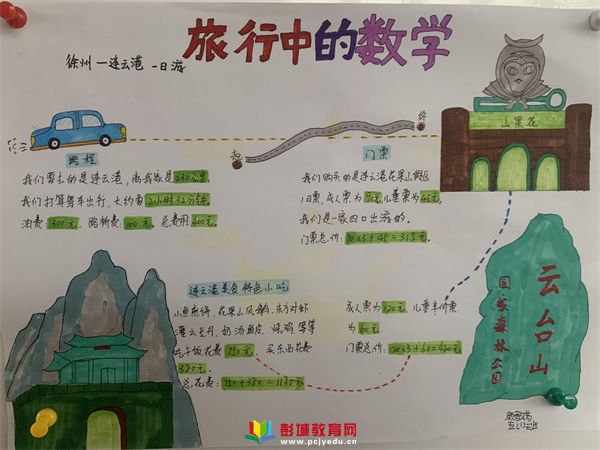 旅行中的数学
徐州—连云港 一日游
终
起
山果花
路程
我们要去的是连云港,离我家是230公里。
我们打算驾车出行,大约需2小时32分钟。
油费300元,路桥费:100元。总费用:400元。
门票
我们购买的是连云港花果山景区
门票,成人票为90元,儿童票为45元,
我们是一家四口出游的。
门票总价:90×3+45=315元。
连云港美食特色小吃
小鱼煎饼、花果山风鹅、东方对虾
灌云豆丹、奶汤鱼皮、烧鸡等等
吃午饭花费750元 买东西花费
380元。
总花费:750+380=1130元
成人票为120元,儿童半价票
为60元。
门票总价:120×3+60=420元
云台山
国家森林公园
五(1)班
彭城教育网
www.pcjyedu.cn